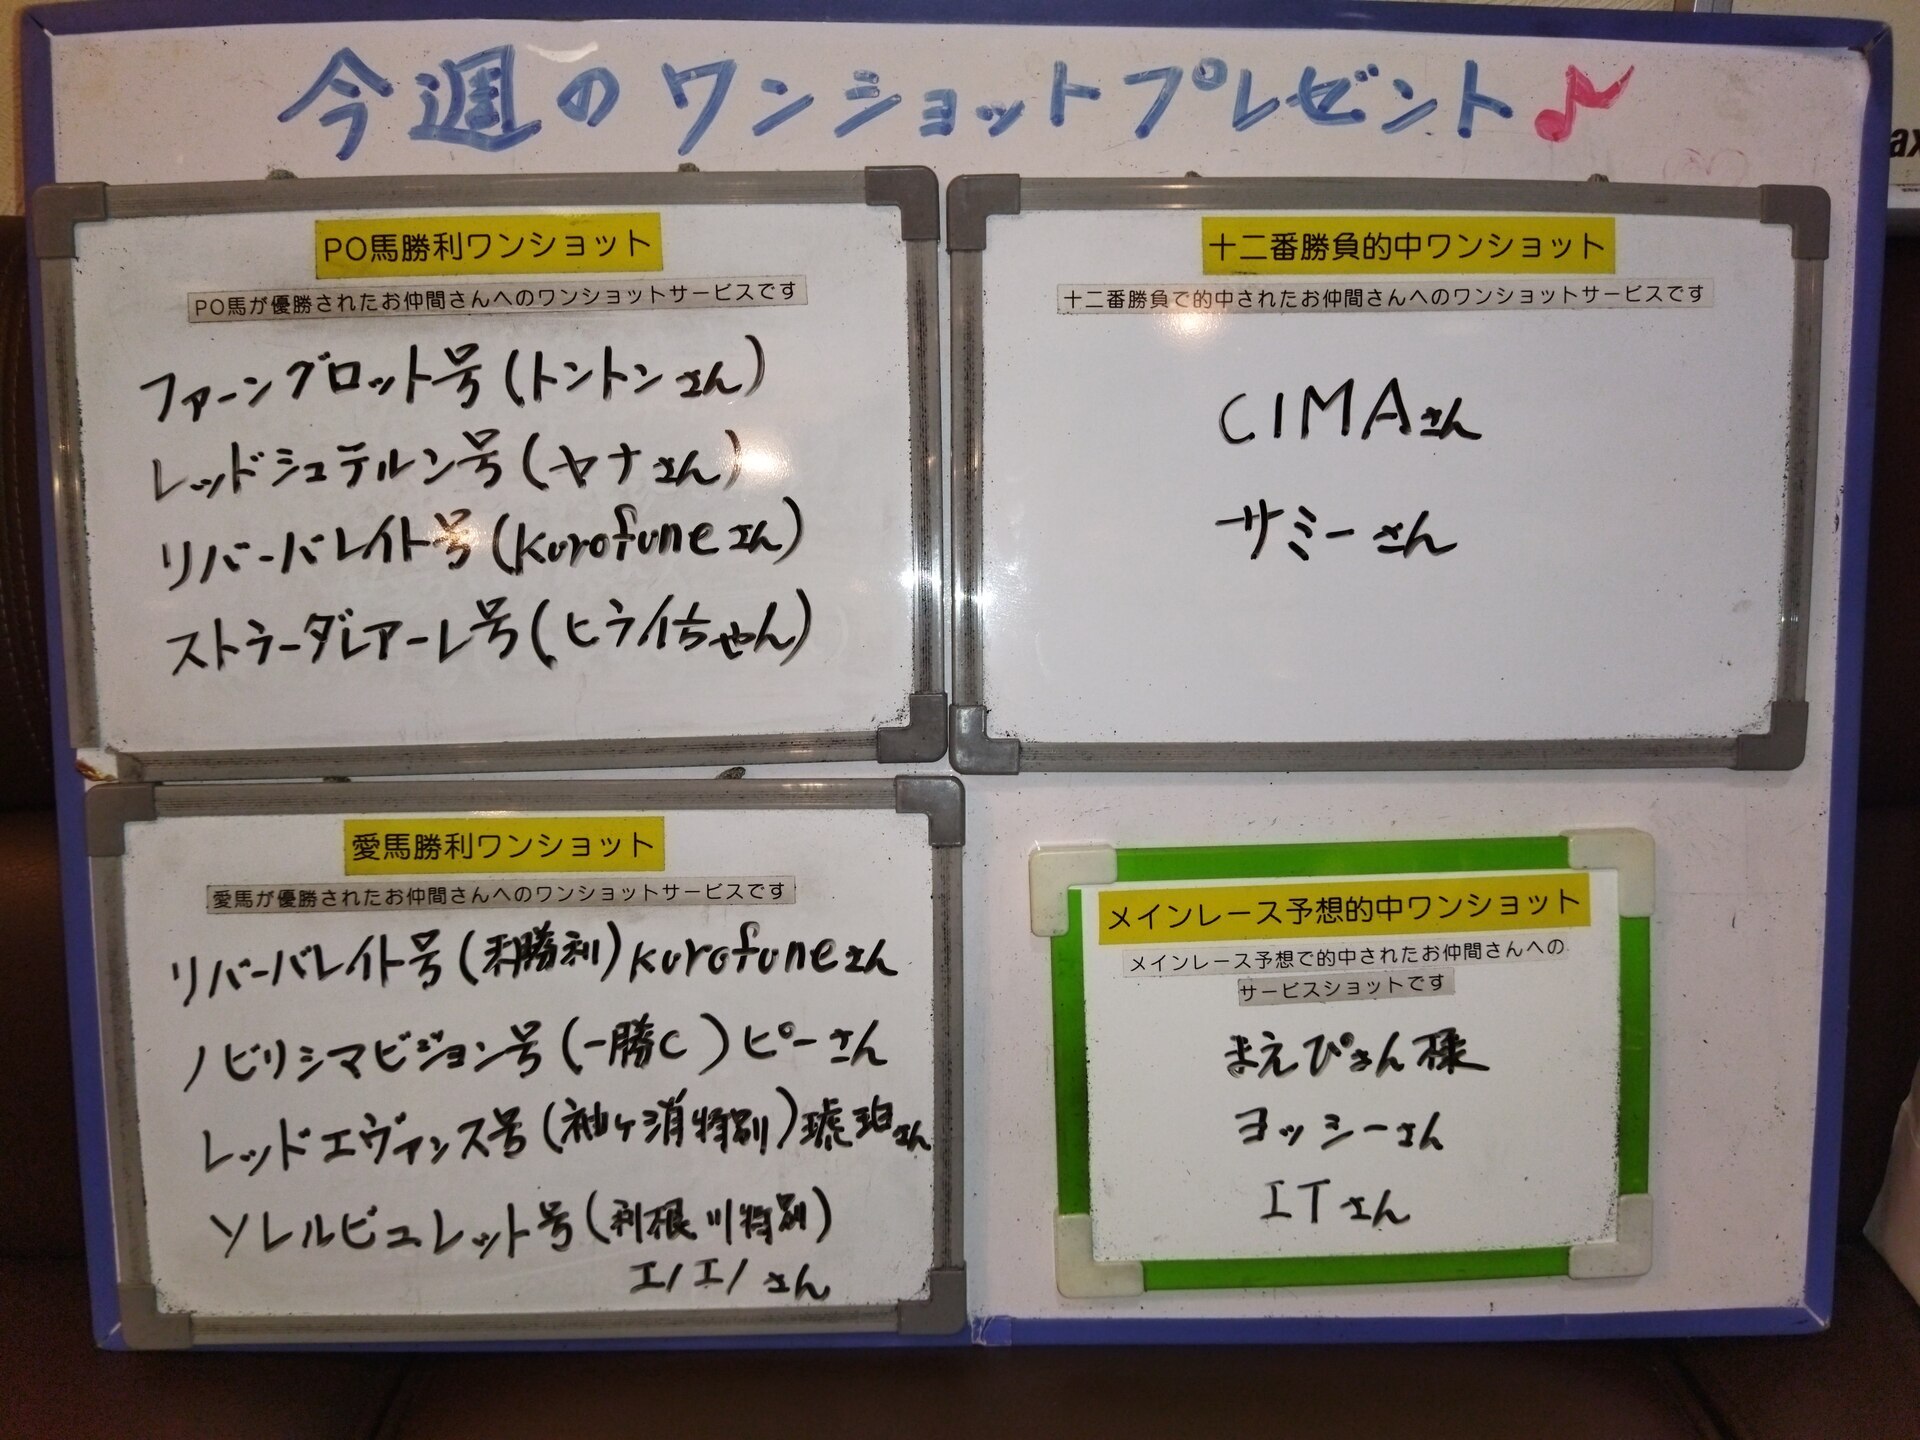 今週のワンショットプレゼント♪
PO馬勝利ワンショット
PO馬が優勝されたお仲間さんへのワンショットサービスです
ファーングロット号(トントンさん)
レッドシュテルン号(ヤナさん)
リバーバレイト号(kurofuneさん)
ストラーダレアーレ号(ヒライちゃん)
十二番勝負的中ワンショット
十二番勝負で的中されたお仲間さんへのワンショットサービスです
CIMAさん
サミーさん
愛馬勝利ワンショット
愛馬が優勝されたお仲間さんへのワンショットサービスです
リバーバレイト号(未勝利)kurofuneさん
ノビリシマビジョン号(一勝C)ピーさん
レッドエヴァンス号(袖ヶ浦特別)琥珀さん
ソレルビュレット号(利根川特別)
エノエノさん
メインレース予想的中ワンショット
メインレース予想で的中されたお仲間さんへの
サービスショットです
まえぴさん様
ヨッシーさん
ITさん